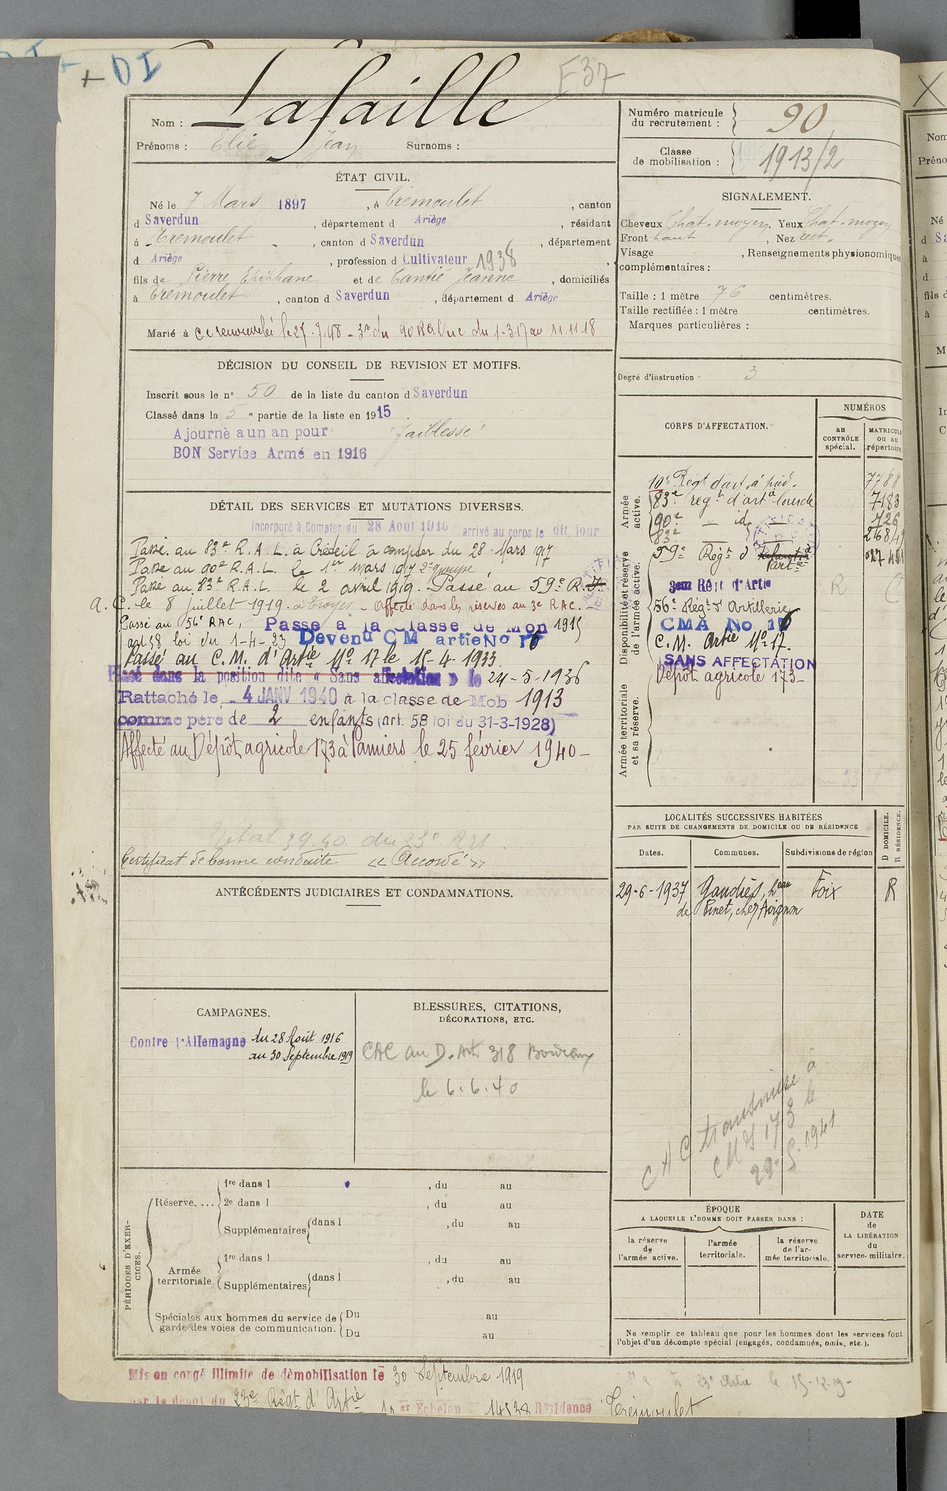 + DI
F37
Nom : Lafaille
Prénoms : Elie Jean Surnoms :
Numéro matricule du recrutement : 90
Classe de mobilisation : 1913/2
ÉTAT CIVIL.
Né le 7 Mars 1897, à Trémoulet, canton
d Saverdun, département d Ariège, résidant
à Trémoulet, canton d Saverdun, département
d Ariège, profession d Cultivateur 1938
fils de Pierre Epiphane et de Jeanne, domiciliés
à Trémoulet, canton d Saverdun, département d Ariège
Marié à
SIGNALEMENT.
Cheveux Chat. moyen Yeux Chat. moyen
Front haut, Nez rect.
Visage , Renseignements physionomiques
complémentaires :
Taille : 1 mètre 76 centimètres.
Taille rectifiée : 1 mètre centimètres.
Marques particulières :
Degré d'instruction 3
DÉCISION DU CONSEIL DE REVISION ET MOTIFS.
Inscrit sous le n° 50 de la liste du canton d Saverdun
Classé dans la 5e partie de la liste en 1915.
Ajourné a un an pour "faiblesse"
BON Service Armé en 1916
DÉTAIL DES SERVICES ET MUTATIONS DIVERSES.
Incorporé à Compter du 28 Aout 1916 arrivé au corps le dit jour
Passé au 83e R.A.L. à Créteil à compter du 28 Mars 1917
Passé au 90e R.A.L. le 1er mars 1917
Passé au 83e R.A.L. le 2 avril 1919. Passé au 59e R.
a. C. le 8 juillet 1919. à Troyes - Affecté dans les réserves au 3e RAC.
Passé au 56e RAC, Passé à la Classe de Mob 1915
art 58 loi du 1-4-23 Devenu CM artie No 16
Passé au C.M. d'Artie No 17 le 15-4-1933
Placé dans la position dite « Sans affectation » le 24-5-1936
Rattaché le 4 JANV 1940 à la classe de Mob 1913
comme père de 2 enfants (art. 58 loi du 31-3-1928)
Affecté au Dépôt agricole 173 à Pamiers le 25 février 1940 -
Certificat de bonne conduite « Accordé »
CORPS D'AFFECTATION.
NUMÉROS
au CONTRÔLE spécial.
MATRICULE ou au répertoire.
Armée active.
Disponibilité et réserve de l'armée active.
Armée territoriale et sa réserve.
10e Régt d'art. à pied. 7788
83e reg. d'arta lourde 7183
90e - id -
83e
59e Régt d'
3eme Régt d'Artie
56e Régt d'Artillerie
CMA No 16
C.M. Artie No 17.
SANS AFFECTATION
Dépôt agricole 173 -
R
ANTÉCÉDENTS JUDICIAIRES ET CONDAMNATIONS.
LOCALITÉS SUCCESSIVES HABITÉES
PAR SUITE DE CHANGEMENTS DE DOMICILE OU DE RÉSIDENCE
Dates. Communes. Subdivisions de région D DOMICILE. R RÉSIDENCE.
29-6-1937 Gaudiès, hau Foix R
de Pinet, chez Avignon
CAMPAGNES.
Contre l'Allemagne du 28 Août 1916
au 30 Septembre 1919
BLESSURES, CITATIONS,
DÉCORATIONS, ETC.
CAC au D. Art 318 Bordeaux
le 6.6.40
CAC transmise à
CM 173 le
PÉRIODES D'EXERCICES.
Réserve.... 1re dans l , du au
2e dans l , du au
Supplémentaires dans l , du au
Armée territoriale. 1re dans l , du au
Supplémentaires dans l , du au
Spéciales aux hommes du service de garde des voies de communication. Du au
Du au
ÉPOQUE
A LAQUELLE L'HOMME DOIT PASSER DANS :
la réserve de l'armée active.
l'armée territoriale.
la réserve de l'armée territoriale.
DATE de LA LIBÉRATION du service militaire.
Ne remplir ce tableau que pour les hommes dont les services font l'objet d'un décompte spécial (engagés, condamnés, omis, etc.).
Mis en congé illimité de démobilisation le 30 Septembre 1919
par le dépôt du 23e Régt d'Artie Echelon Résidence Trémoulet